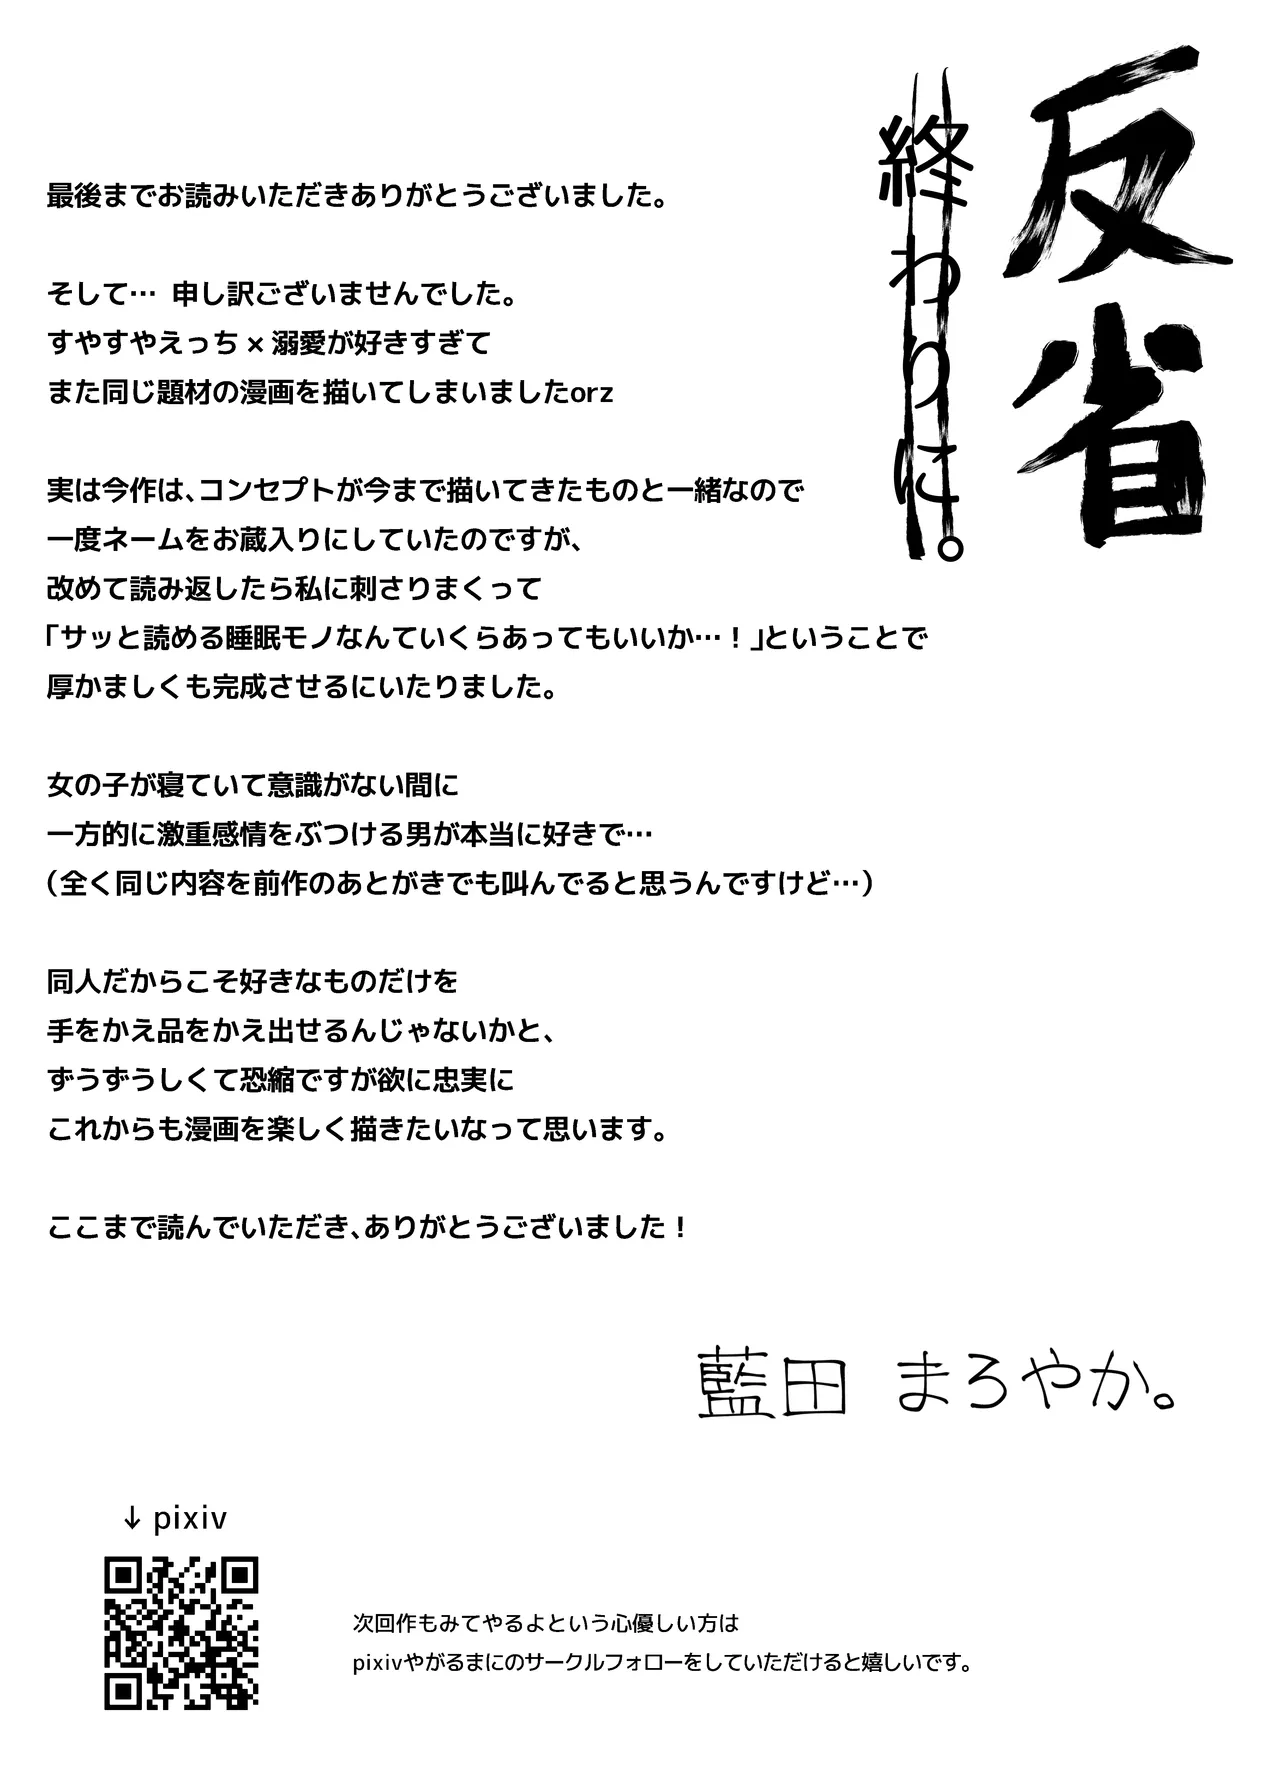 反省
終わりに。
最後までお読みいただきありがとうございました。
そして… 申し訳ございませんでした。
すやすやえっち×溺愛が好きすぎて
また同じ題材の漫画を描いてしまいましたorz
実は今作は、コンセプトが今まで描いてきたものと一緒なので
一度ネームをお蔵入りにしていたのですが、
改めて読み返したら私に刺さりまくって
「サッと読める睡眠モノなんていくらあってもいいか…！」ということで
厚かましくも完成させるにいたりました。
女の子が寝ていて意識がない間に
一方的に激重感情をぶつける男が本当に好きで…
（全く同じ内容を前作のあとがきでも叫んでると思うんですけど…）
同人だからこそ好きなものだけを
手をかえ品をかえ出せるんじゃないかと、
ずうずうしくて恐縮ですが欲に忠実に
これからも漫画を楽しく描きたいなって思います。
ここまで読んでいただき、ありがとうございました！
藍田 まろやか。
↓pixiv
次回作もみてやるよという心優しい方は
pixivやがるまにのサークルフォローをしていただけると嬉しいです。